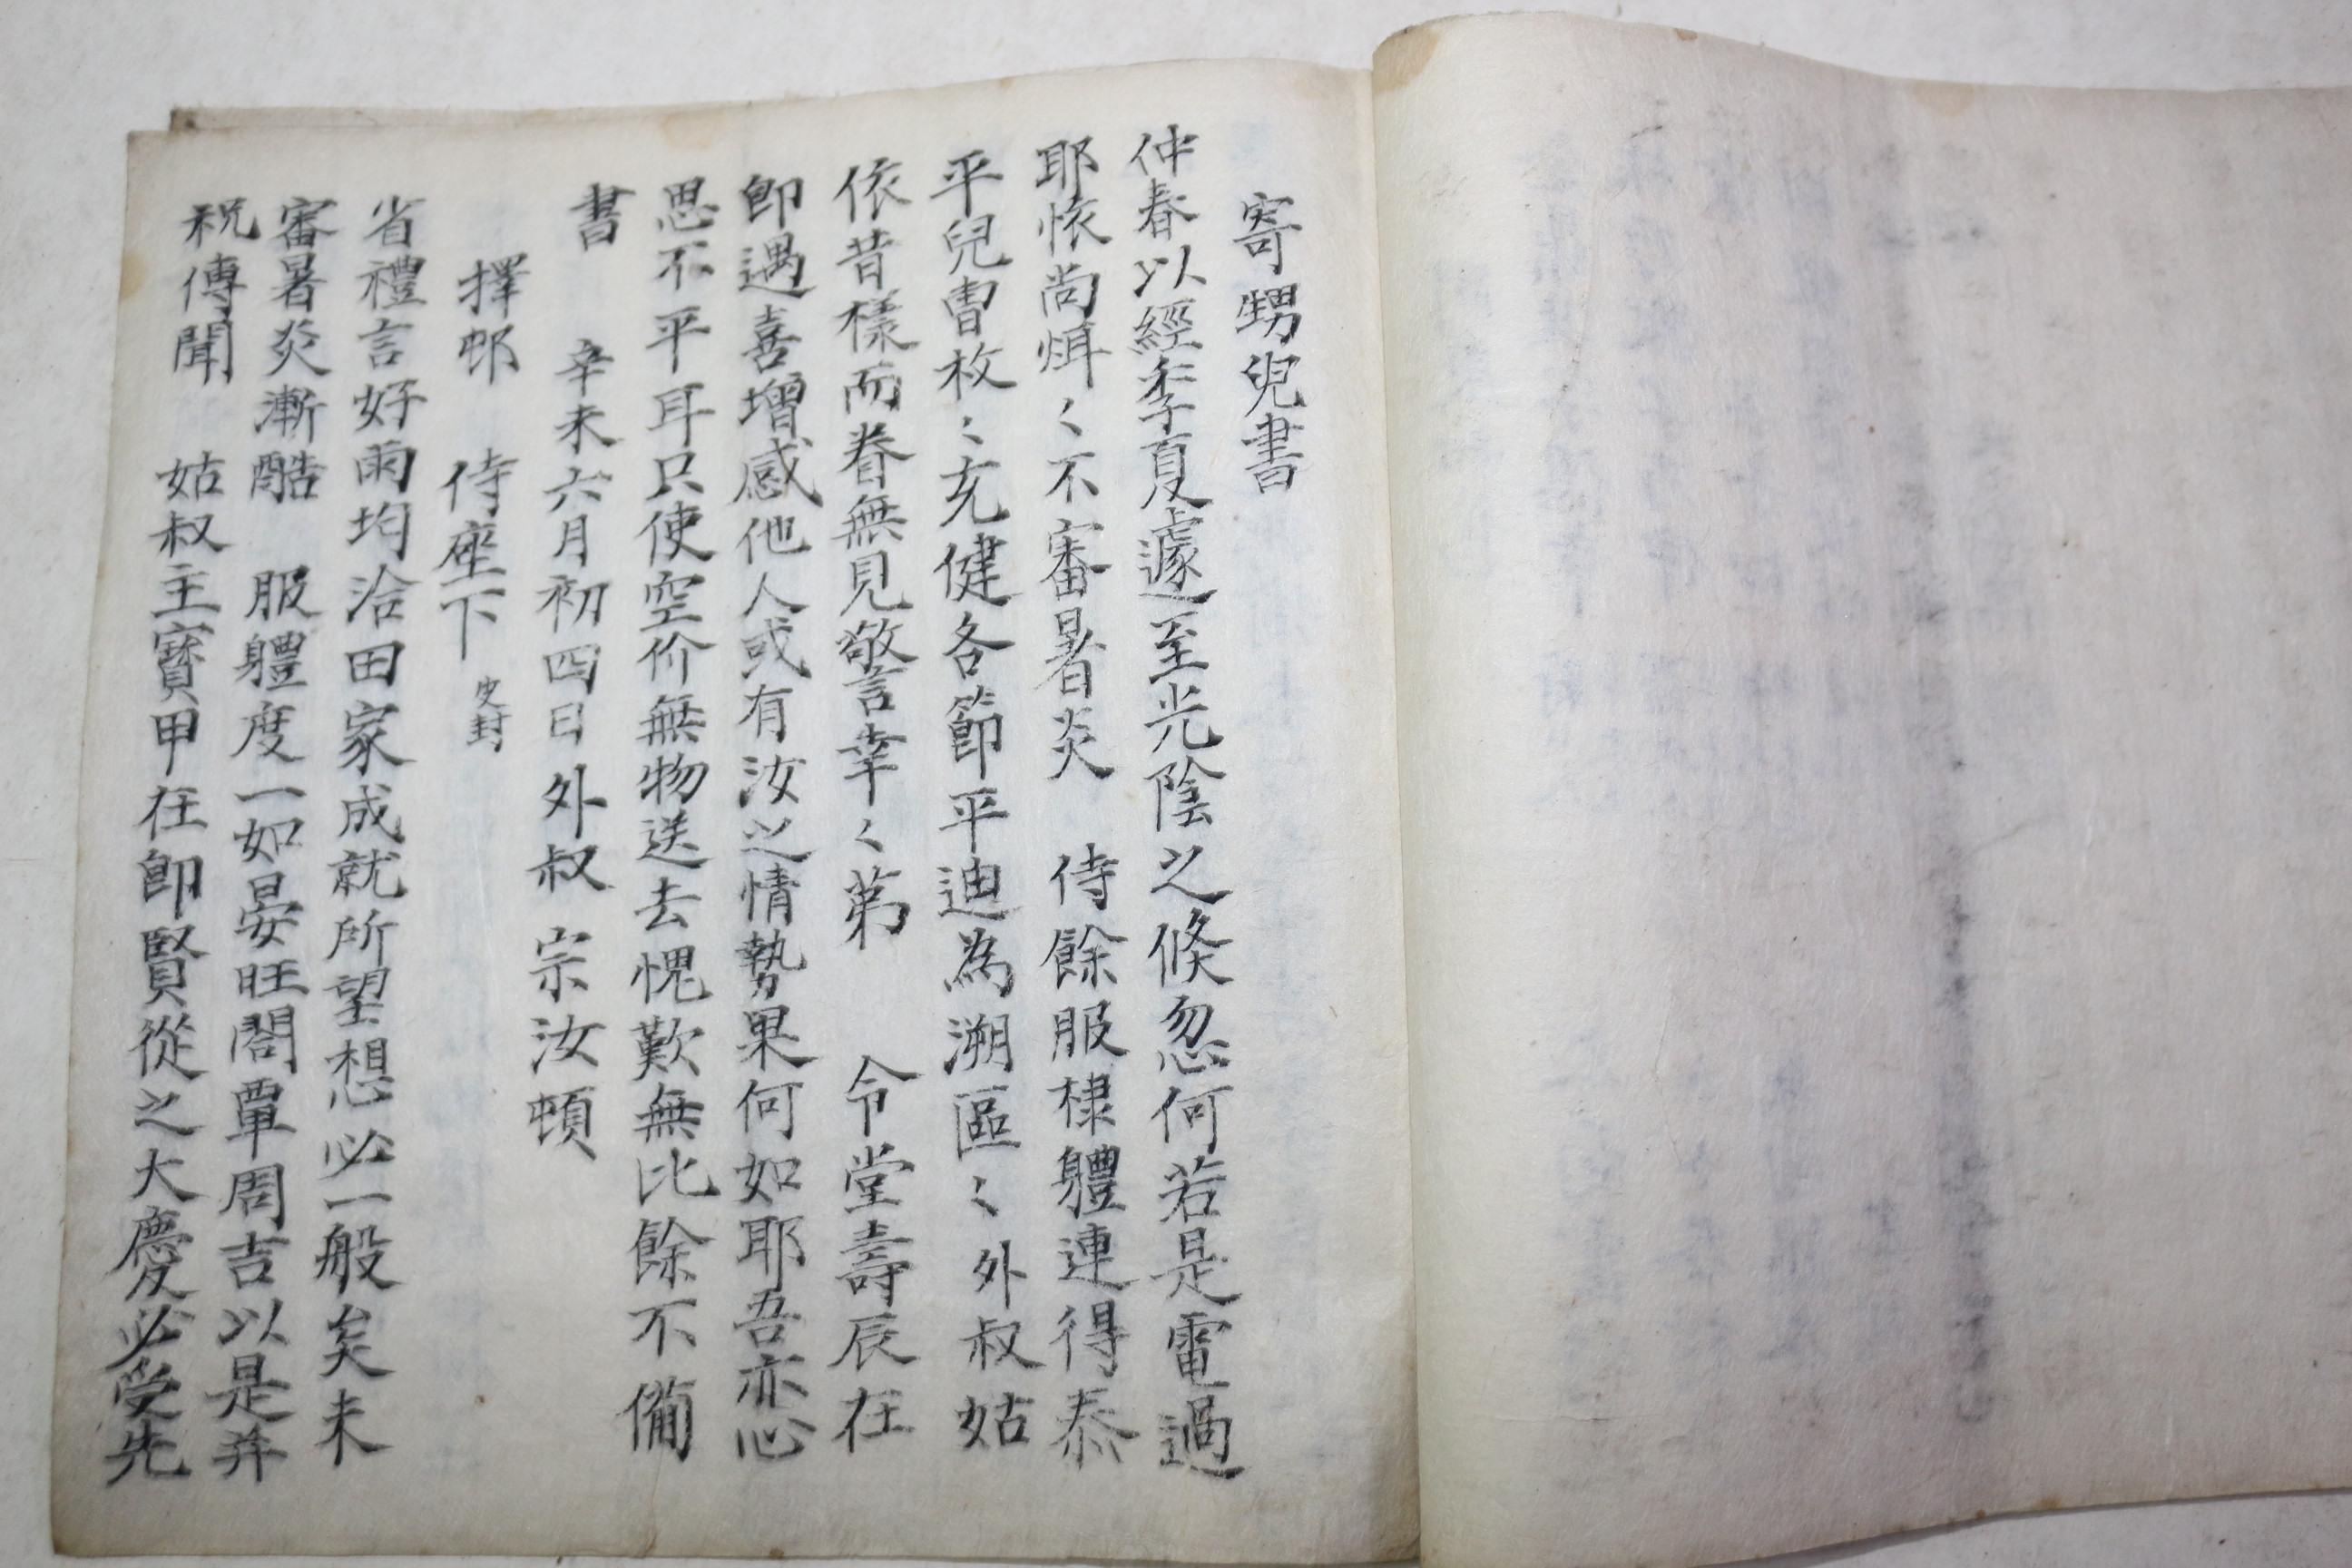 寄甥兒書
仲春以經季夏遽至光陰之倐忽何若是電過
耶恠尚㷌〻不審暑炎 侍餘服棣軆連得泰
平兒曺枚〻充健各節平迪為溯區〻外叔姑
依昔樣而眷無見警幸〻苐 令堂壽辰在
即遇喜增感他人或有汝之情勢果何如耶吾亦心
思不平耳只使空价無物送去愧歎無比餘不備
書 辛未六月初四日外叔 宗汝頓
擇邨 侍座下 叓封
省禮言好雨均洽田家成就所望想必一般矣未
審暑炎漸酷 服軆度一如晏旺閤覃周吉以是幷
祝傳聞 姑叔主寶甲在即賢從之大慶必受先